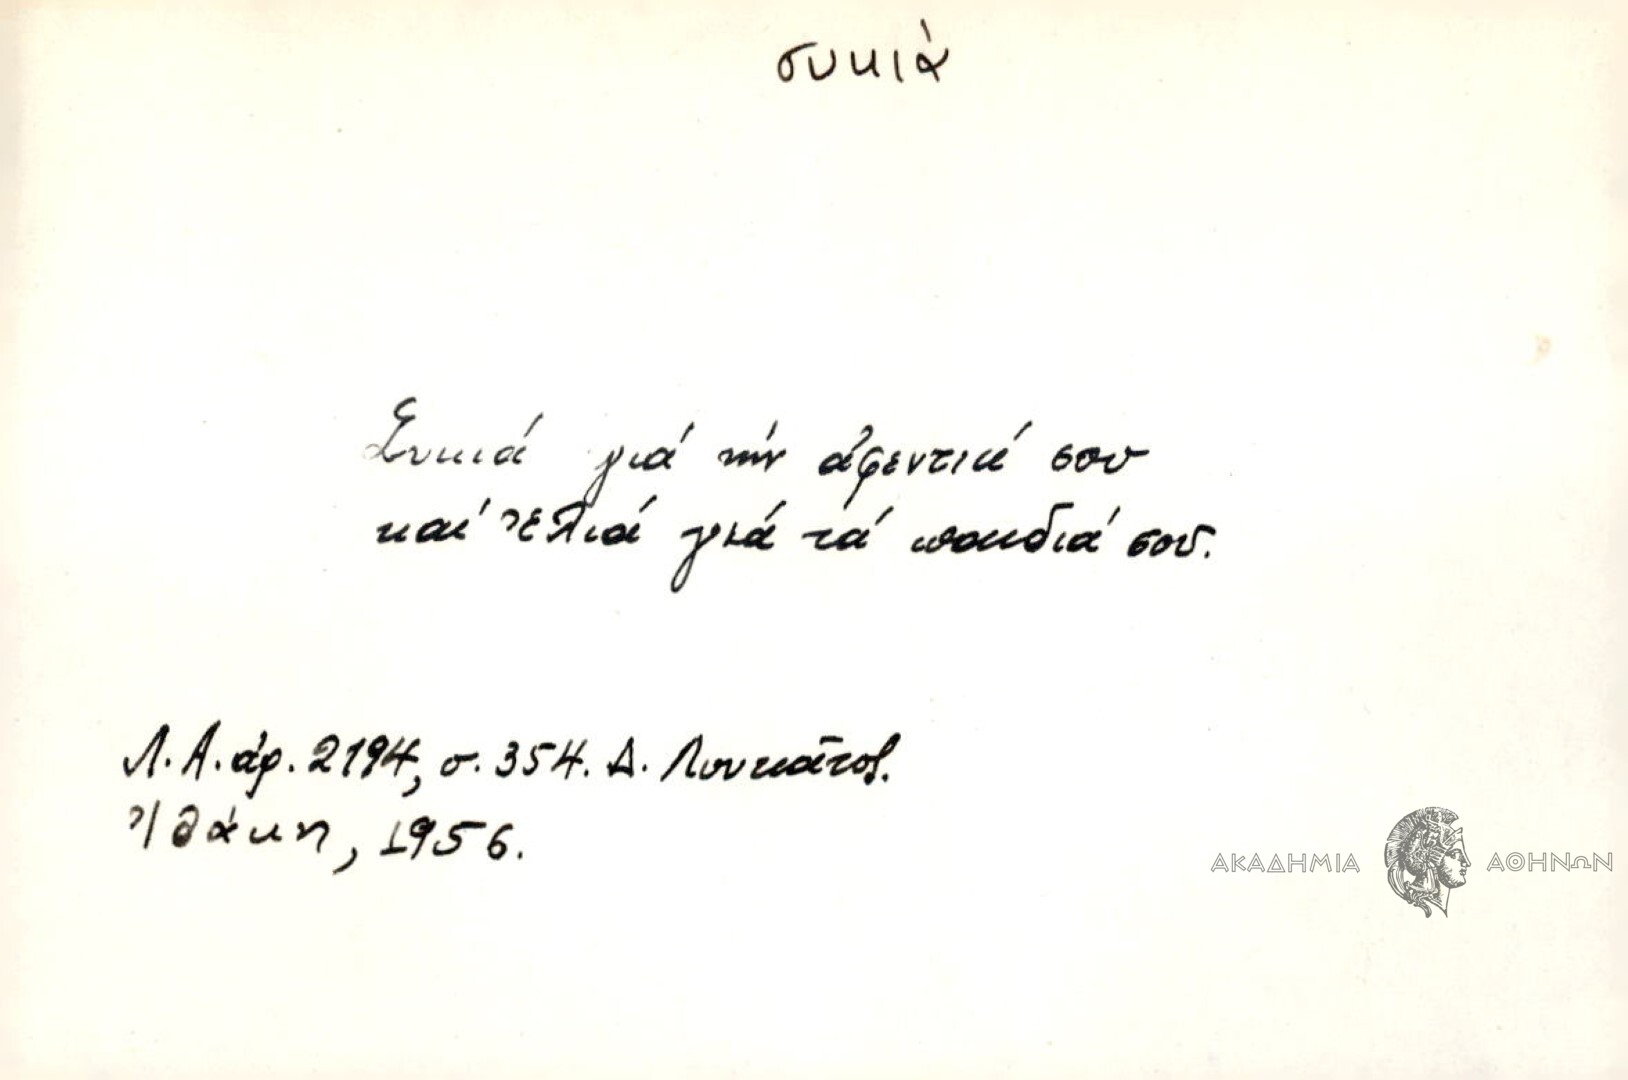 συκιὰ
Συκιά γιά τήν ἀφεντιά σου
καί ἐλιά γιά τά παιδιά σου.
Λ.Α. ἀρ. 2194, σ. 354. Δ. Λουκᾶτος.
Ἰθάκη, 1956.
ΑΚΑΔΗΜΙΑ ΑΘΗΝΩΝ